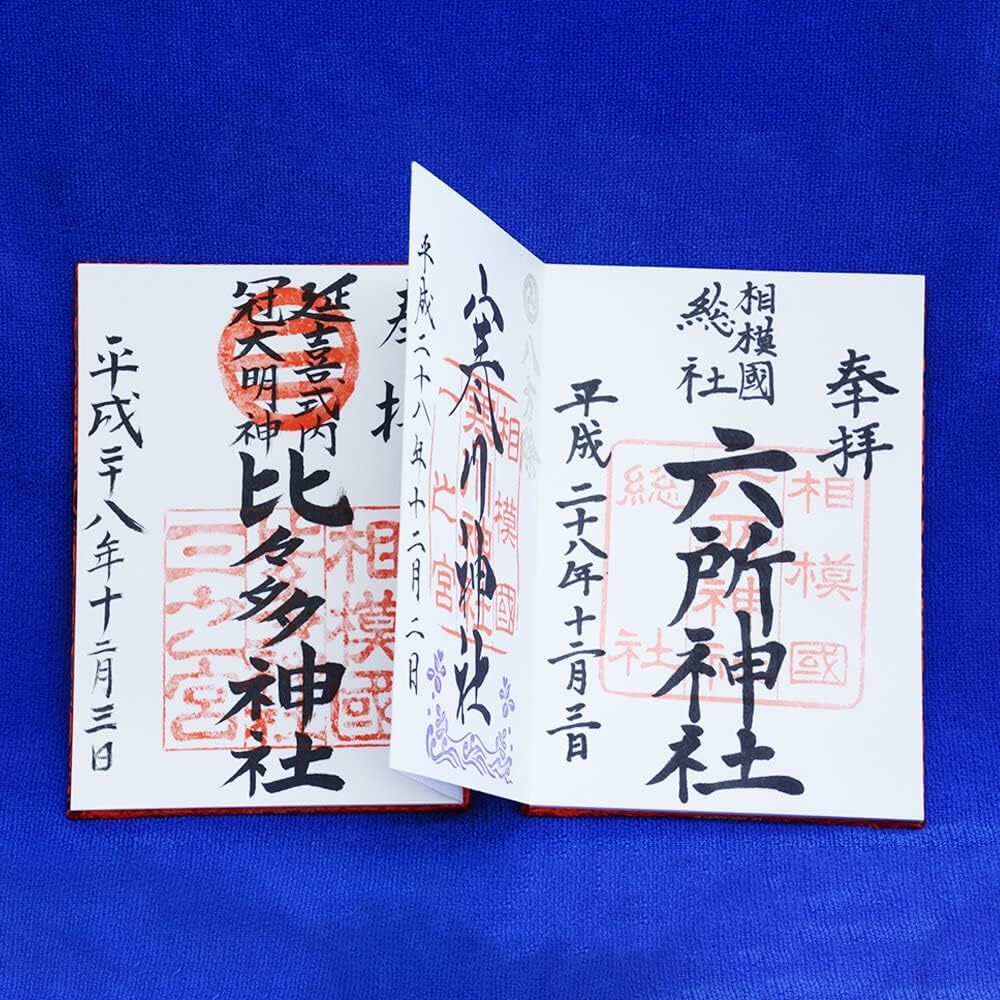 奉拝
相模國
総社
六所神社
相模國
総社
平成二十八年十二月三日
八方除
寒川神社
相模國
一之宮
平成二十八年十二月二日
奉拝
延喜式内
冠大明神
比々多神社
相模國
三之宮
平成二十八年十二月三日